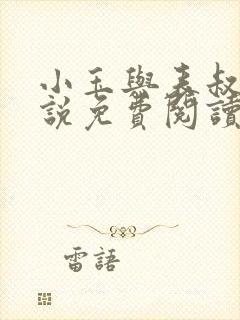 小玉與表叔
說免費閱讀
雷語